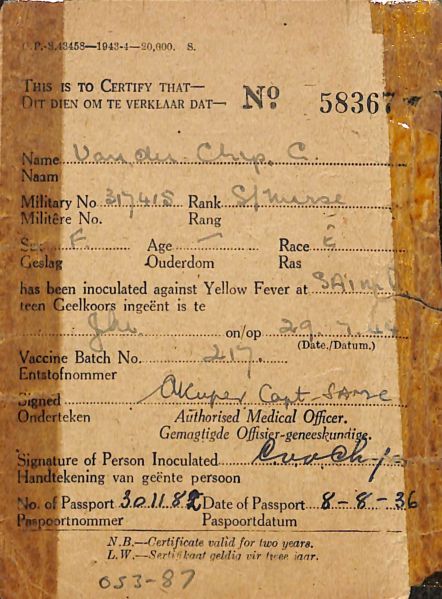 G.P.-S.43458—1943-4—20,000. S.
THIS IS TO CERTIFY THAT—
DIT DIEN OM TE VERKLAAR DAT— No 58367
Name Van der Chys. C.
Naam
Military No 317415 Rank S/Nurse
Militêre No. Rang
Sex F. Age — Race E
Geslag Ouderdom Ras
has been inoculated against Yellow Fever at
teen Geelkoors ingeënt is te
Jhb. on/op 29.7.44
(Date./Datum.)
Vaccine Batch No. 217.
Entstofnommer
Signed Capt SAMC
Onderteken Authorised Medical Officer.
Gemagtigde Offisier-geneeskundige.
Signature of Person Inoculated
Handtekening van geënte persoon
No. of Passport 301182 Date of Passport 8-8-36
Paspoortnommer Paspoortdatum
N.B.—Certificate valid for two years.
L.W.—Sertifikaat geldig vir twee jaar.
053-87